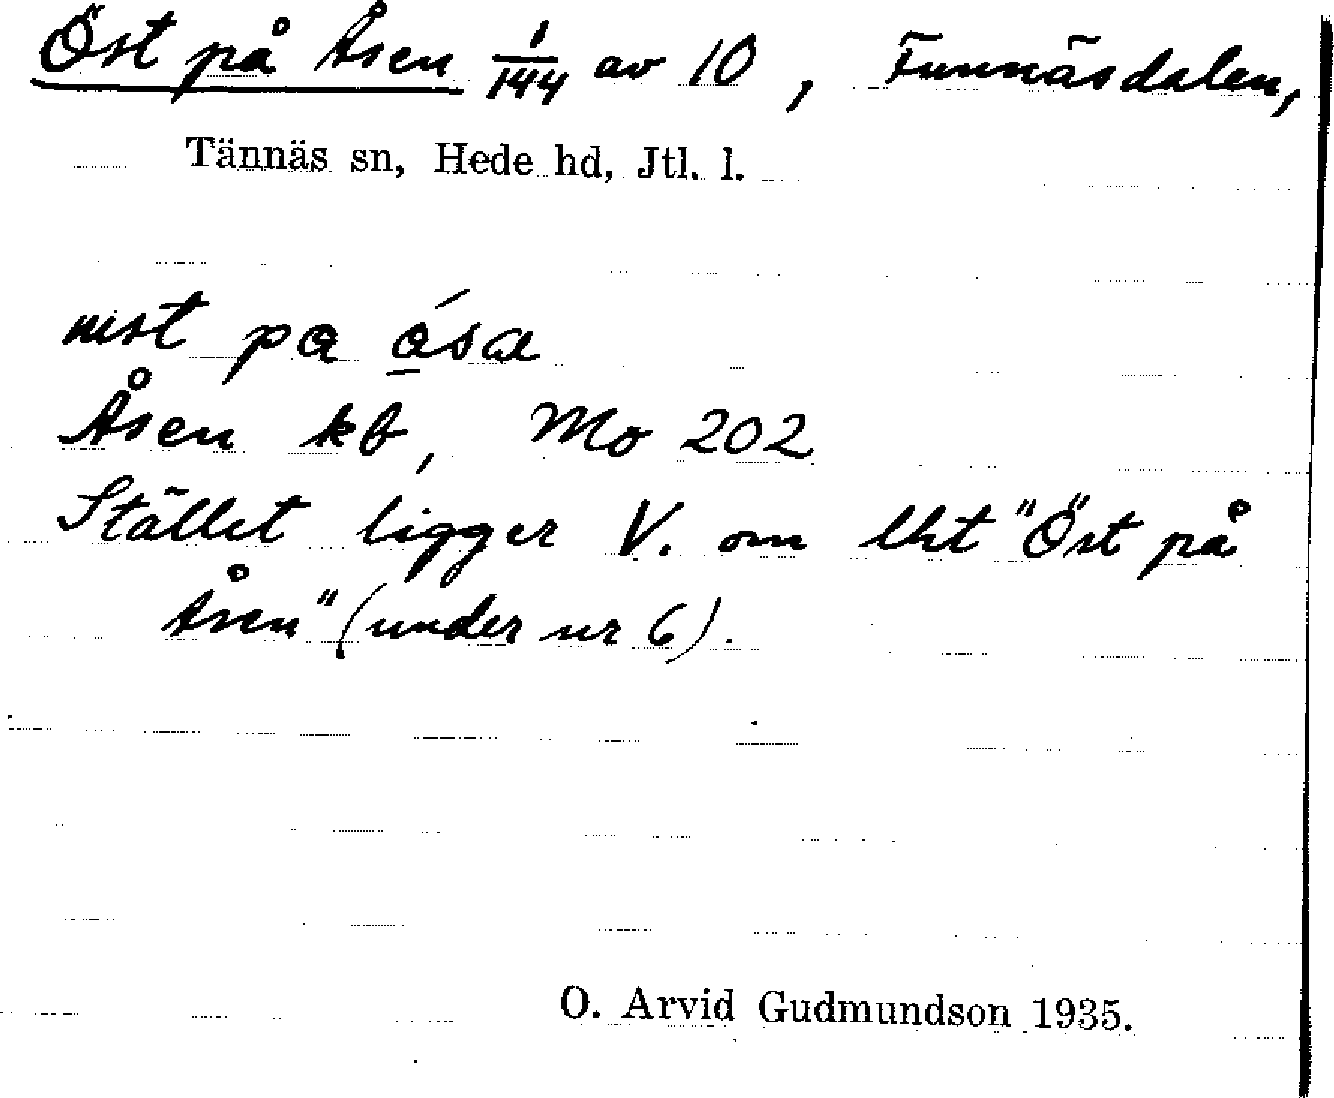 Öst på Åsen 1/144 av 10, Funnäsdalen,
Tännäs sn, Hede hd, Jtl. l.
pa
Åsen kb, Mo 202
Stället ligger V. om lht "Öst på
Åsen" (under nr 6).
O. Arvid Gudmundson 1935.